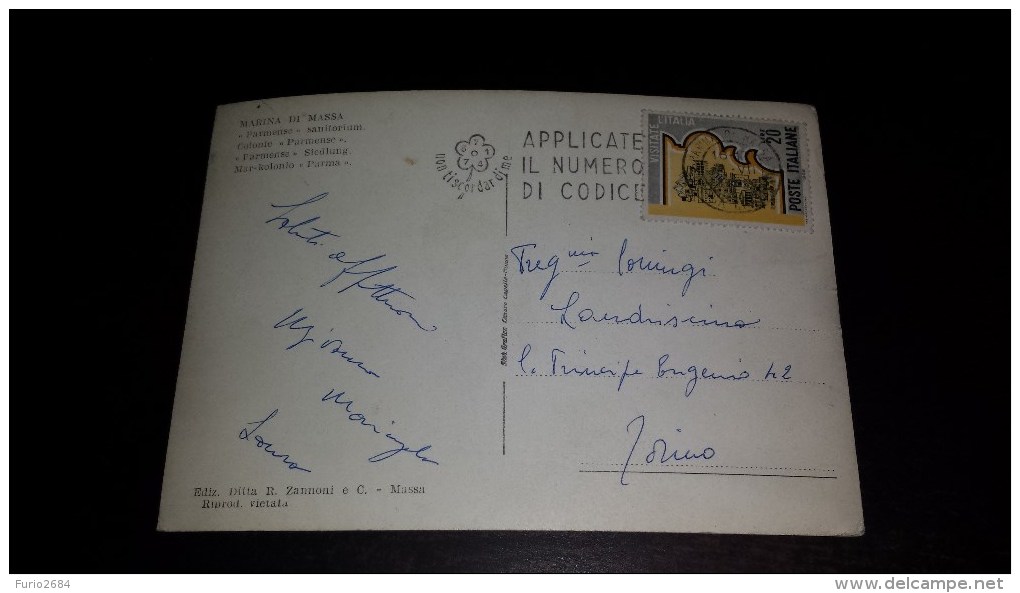 MARINA DI MASSA
« Parmense » sanitorium.
Colonie « Parmense ».
« Parmense » Siedlung.
Mar-kolonio « Parma ».
non ti scordar di me
APPLICATE
IL NUMERO
DI CODICE
VISITATE L'ITALIA
20
POSTE ITALIANE
Saluti affettuosi
Mariangela
Laura
Treg
Landriscina
C. Principe Eugenio 42
Torino
Ediz. Ditta R. Zannoni e C. - Massa
Riprod. vietata
Furio2684
delcampe.net